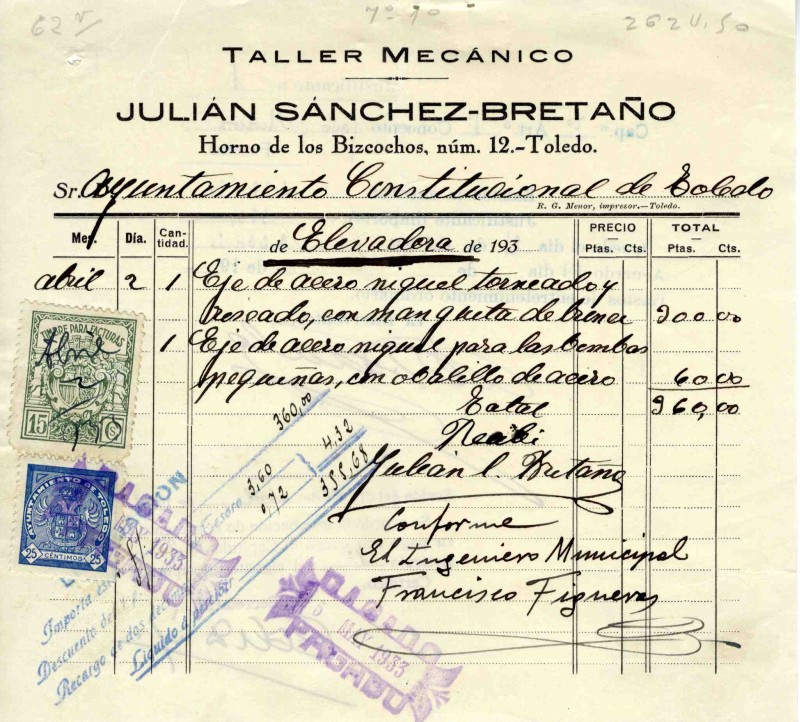 62 v
7º 1º
TALLER MECÁNICO
JULIÁN SÁNCHEZ-BRETAÑO
Horno de los Bizcochos, núm. 12.-Toledo.
Sr. Ayuntamiento Constitucional de Toledo
R. G. Menor, impresor.-Toledo.
Mes. Día. Cantidad. de Elevadora de 193 PRECIO Ptas. Cts. TOTAL Ptas. Cts.
abril 2 1 Eje de acero niquel torneado y
roscado, con manguita de 300,00
1 Eje de acero niquel para las bombas
pequeñas, con de acero 60 00
Total 360,00
Recibi
Julián S. Bretaño
Conforme
El Ingeniero Municipal
Francisco Figueras
TIMBRE PARA FACTURAS
Abril
2
15 Cs
AYUNTAMIENTO DE TOLEDO
25 CENTIMOS 25
Importa 360,00
Descuento de Tesoro 3,60
Recargo de dos 0,72 4,32
Líquido a 355,68
PAGADO
1933
PAGADO
MAY 1933
PAGADO